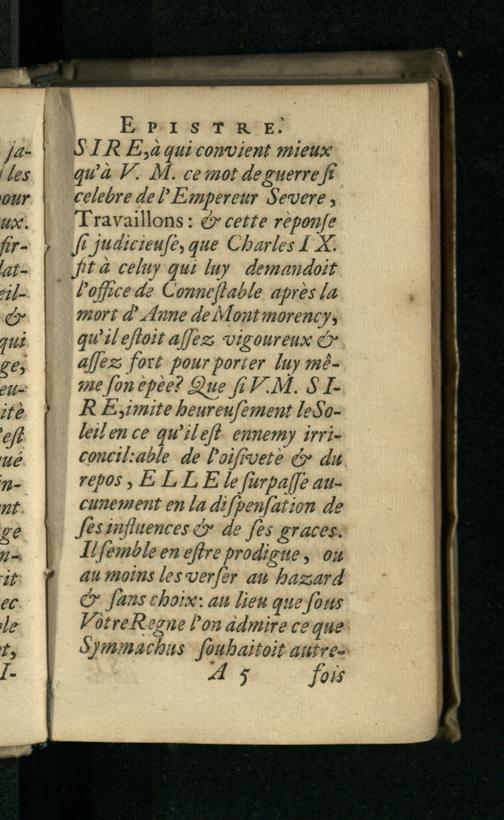 ja-
les
pour
ux.
fir-
lat-
eil-
&
qui
ge,
eu-
itè
'est
qué
in-
nt
ge
n-
it
ec
ble
t,
I-
EPISTRE.
SIRE, à qui convient mieux
qu'à V. M. ce mot de guerre si
celebre de l'Empereur Severe,
Travaillons: & cette rèponse
si judicieuse, que Charles IX.
fit à celuy qui luy demandoit
l'office de Connestable après la
mort d'Anne de Montmorency,
qu'il estoit assez vigoureux &
assez fort pour porter luy mê-
me son epèe? Que si V.M. SI-
RE, imite heureusement le So-
leil en ce qu'il est ennemy irri-
concil:able de l'oisivetè & du
repos, ELLE le surpasse au-
cunement en la dispensation de
ses influences & de ses graces.
Il semble en estre prodigue, ou
au moins les verser au hazard
& sans choix: au lieu que sous
Vòtre Regne l'on admire ce que
Symmachus souhaitoit autre-
A 5 fois